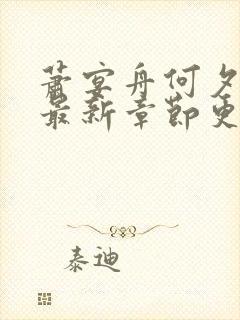 萧宴舟何夕
最新章节更
泰迪